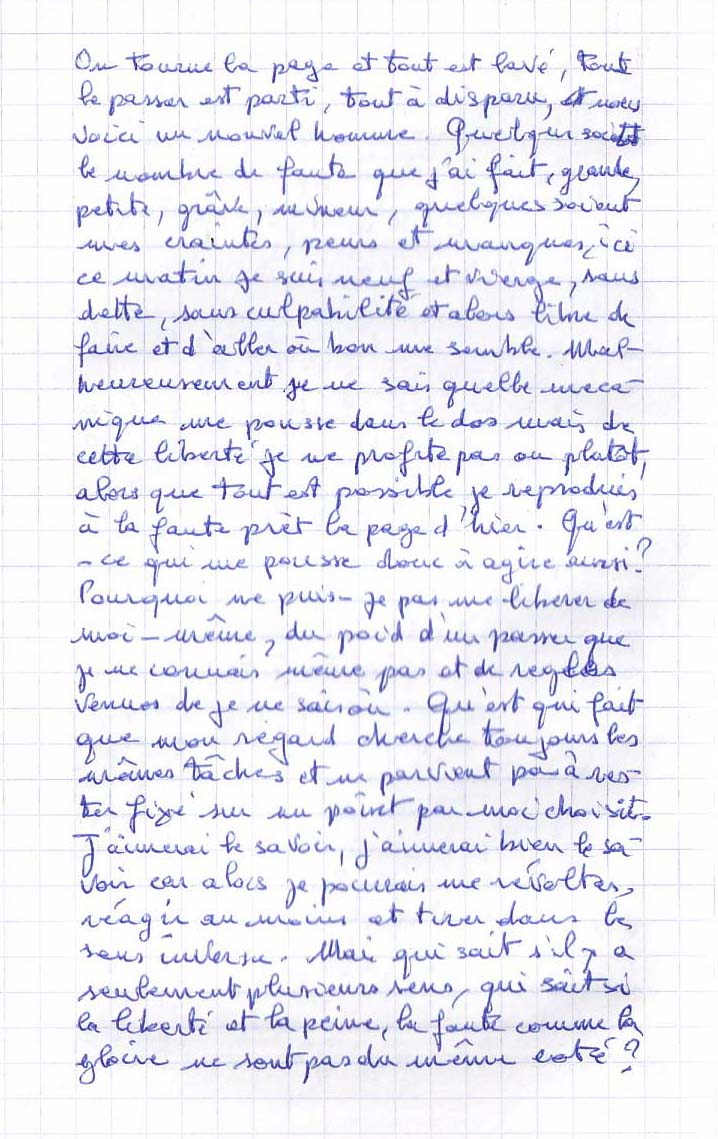 On tourne la page et tout est lavé, tout
le passer est parti, tout à disparu, et nous
voici un nouvel homme. Quelque soit
le nombre de faute que j'ai fait, grande,
petite, grâve, mineur, quelques soient
mes craintes, peurs et manques, ici
ce matin je suis neuf et vierge, sans
dette, sans culpabilité et alors libre de
faire et d'aller où bon me semble. Mal-
heureusement je ne sais quelle meca-
nique me pousse dans le dos mais de
cette liberté je ne profite pas ou plutôt,
alors que tout est possible je reproduis
à la faute prêt la page d'hier. Qu'est
-ce qui me pousse donc à agire ainsi?
Pourquoi ne puis-je pas me liberer de
moi-même, du poid d'un passer que
je ne connais même pas et de regles
venues de je ne sais où. Qu'est qui fait
que mon regard cherche toujours les
mêmes tâches et ne parvient pas à res-
ter fixé sur un point par moi choisit.
J'aimerai le savoir, j'aimerai bien le sa-
voir car alors je pourrais me révolter,
réagir au moins et tirer dans le
sens inverse. Mai qui sait s'il y a
seulement plusieurs sens, qui sait si
la liberté et la peine, la faute comme la
gloire ne sont pas du même coté?